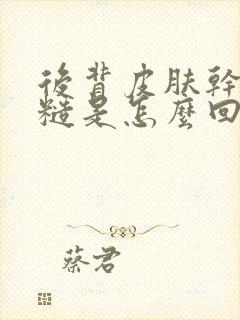 後背皮肤幹
糙是怎麼回
蔡君